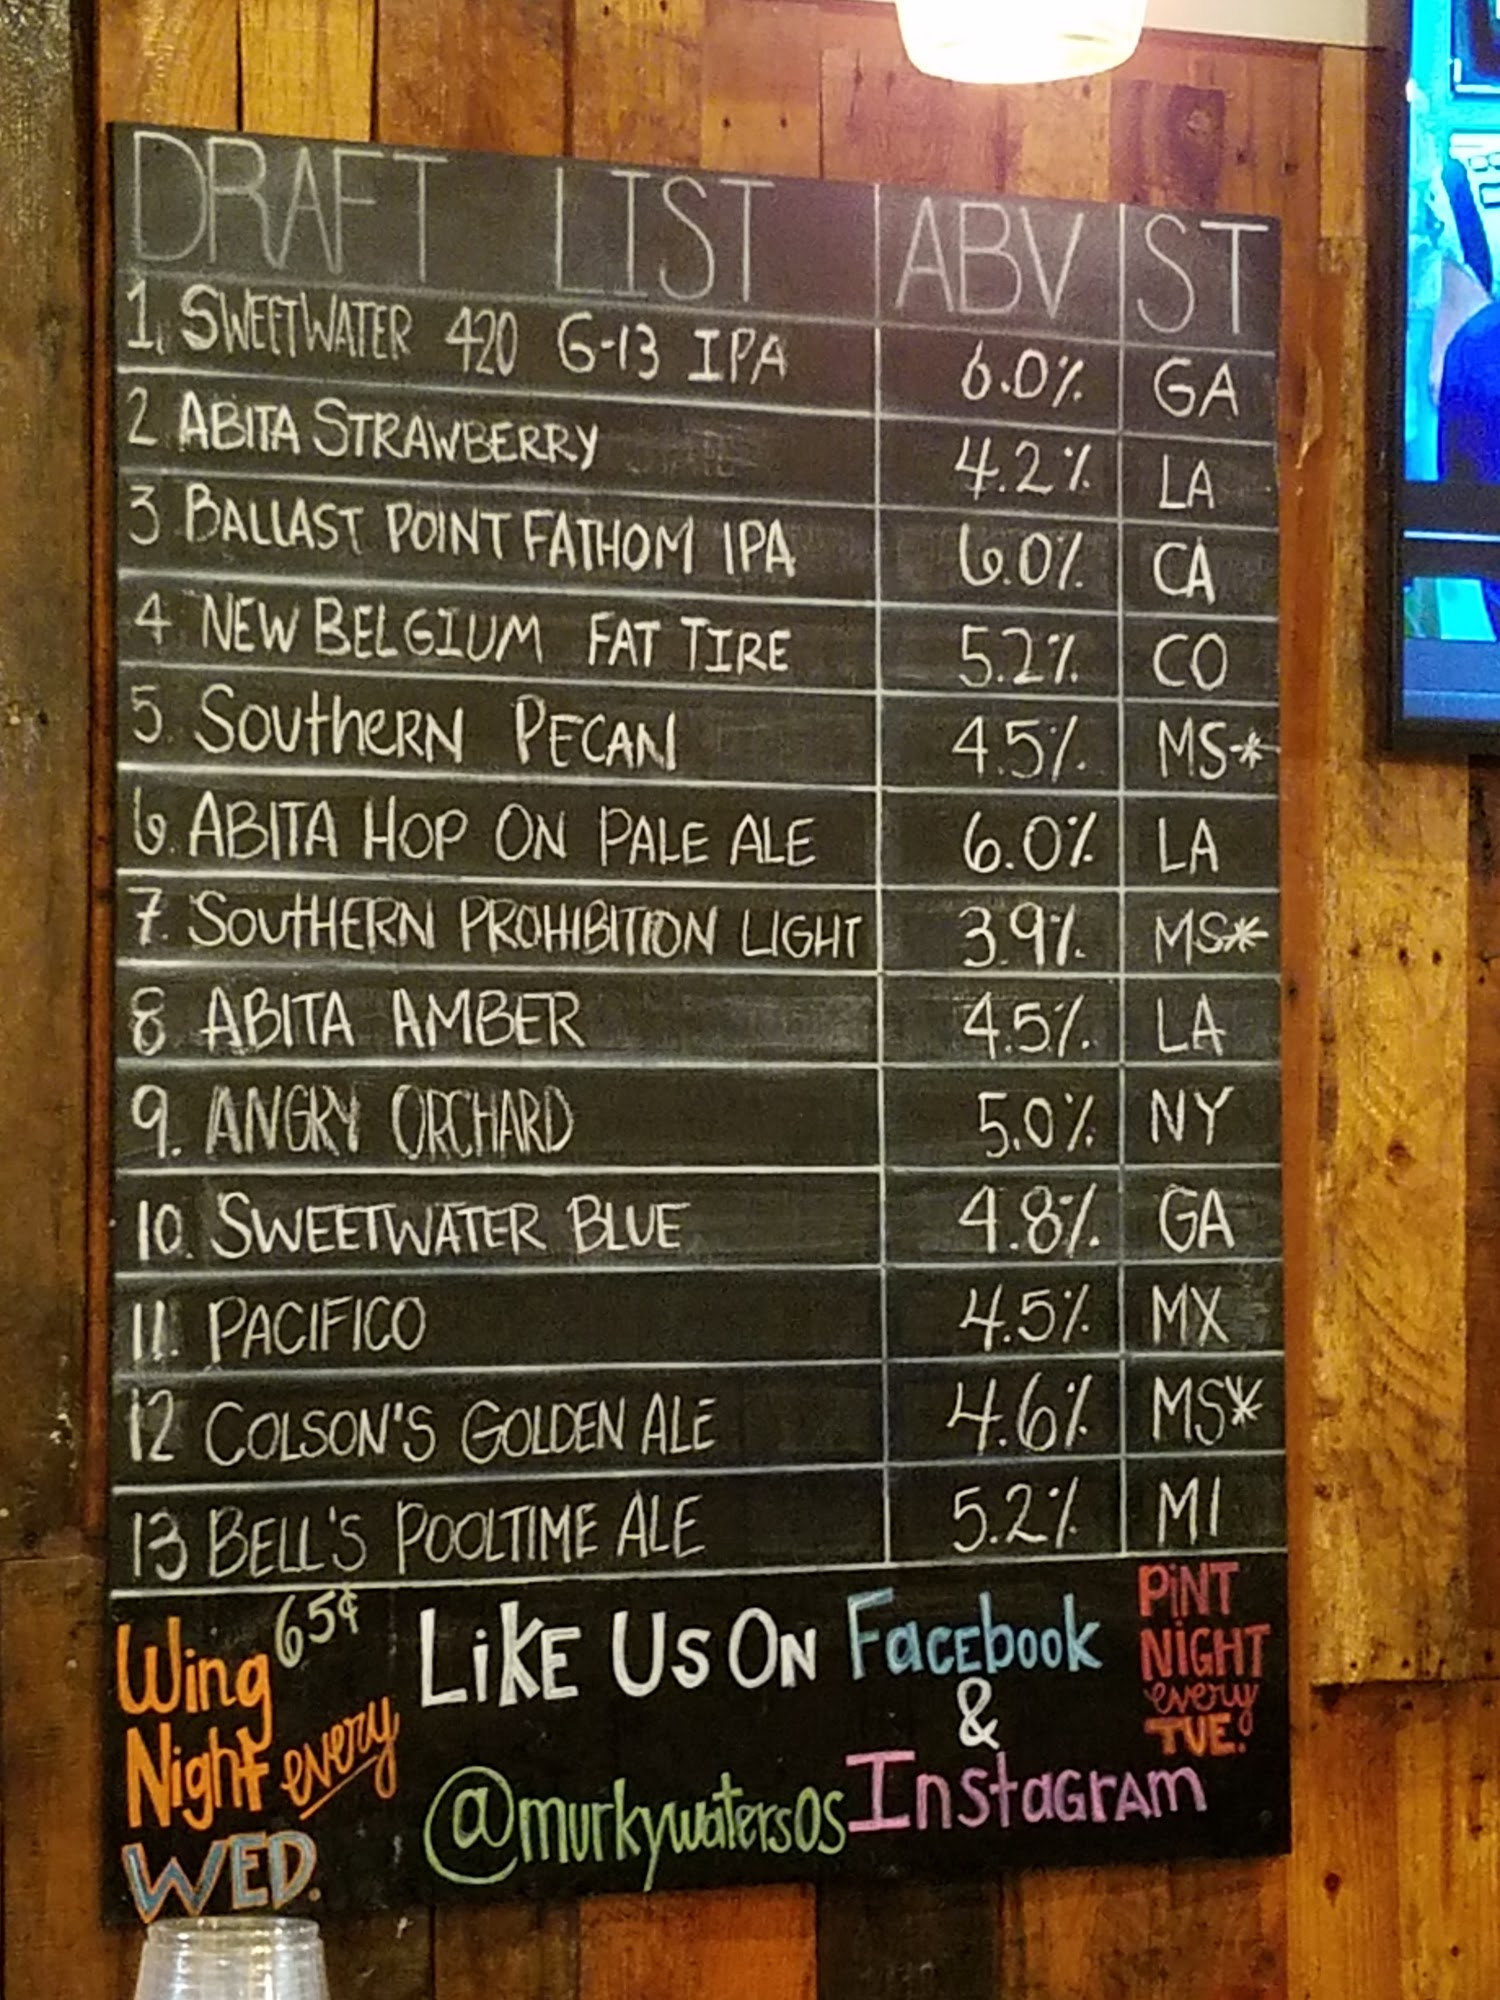 DRAFT LIST ABV ST
1. SWEETWATER 420 G-13 IPA 6.0% GA
2 ABITA STRAWBERRY 4.2% LA
3 BALLAST POINT FATHOM IPA 6.0% CA
4 NEW BELGIUM FAT TIRE 5.2% CO
5. SOUTHERN PECAN 4.5% MS*
6. ABITA HOP ON PALE ALE 6.0% LA
7. SOUTHERN PROHIBITION LIGHT 3.9% MS*
8 ABITA AMBER 4.5% LA
9. ANGRY ORCHARD 5.0% NY
10. SWEETWATER BLUE 4.8% GA
11. PACIFICO 4.5% MX
12 COLSON'S GOLDEN ALE 4.6% MS*
13 BELL'S POOLTIME ALE 5.2% MI
Wing 65¢
Night every
WED.
LIKE US ON Facebook
&
@murkywatersos Instagram
PINT
NIGHT
every
TUE.